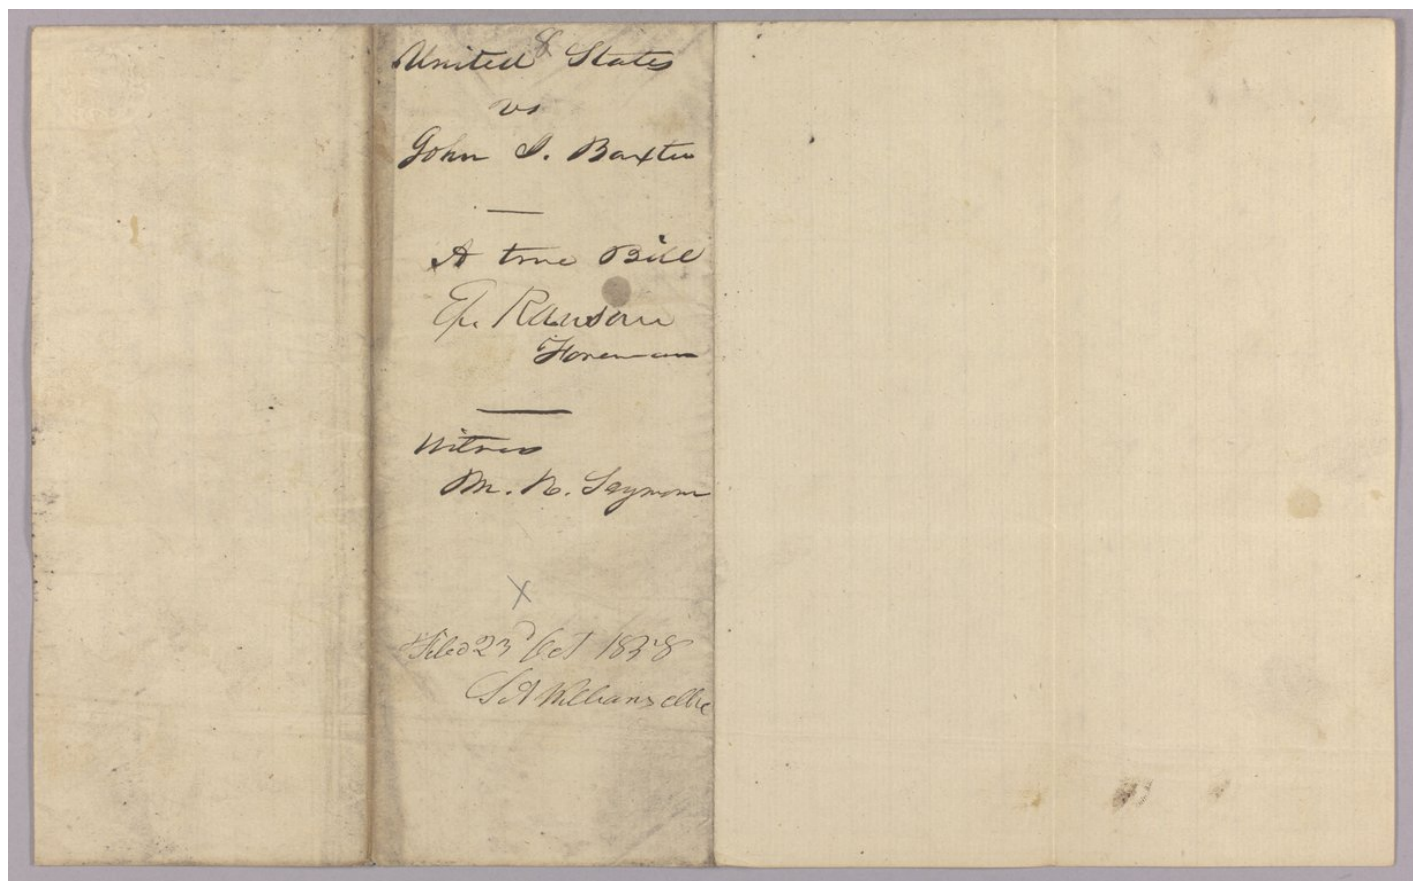 8
United States
vs
John I. Baxter
A true Bill
Ep. Ransom
Foreman
Witness
M. N. Seymour
X
Filed 23d Oct 1838
Williams